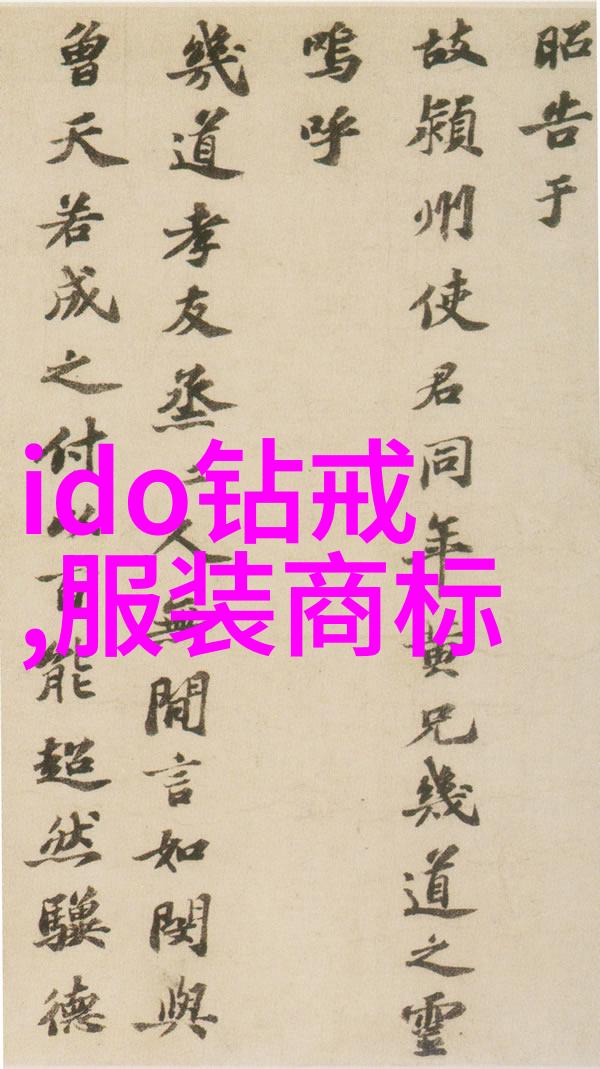 昭告于
故潁州使君同年黄兄幾道之靈
嗚呼
幾道孝友烝烝人無閒言如閔與
曾天若成之付以百能超然驥德
ido钻戒
,服装商标